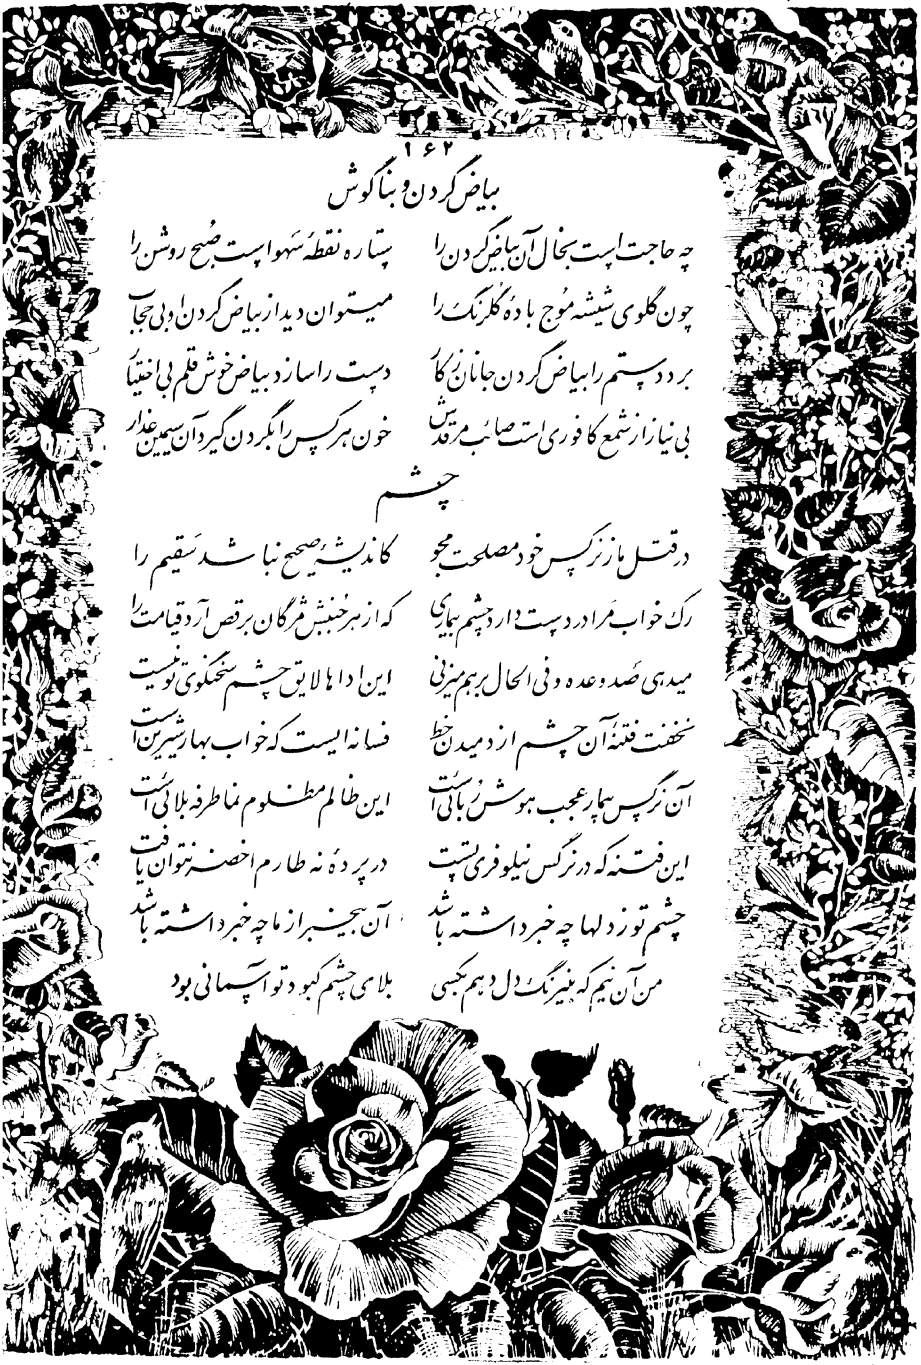 ۱۶۲
بیاض گردن و بناگوش
چه حاجت است بخال آن بیاض گردن را ستاره نقطهٔ سهو است صبح روشن را
چون گلوی شیشه موج بادهٔ گلرنگ را میتوان دید از بیاض گردن او بی حجاب
برد دستم را بیاض گردن جانان ز کار دست را سازد بیاض خوش قلم بی اختیار
بی نیاز از شمع کافوری است صائب مرقدش خون هر کس را بگردن گیرد آن سیمین عذار
چشم
در قتل ما ز نرگس خود مصلحت مجو کاندیشهٔ صحیح نباشد سقیم را
رگ خواب مرا در دست دارد چشم بیماری که از هر جنبش مژگان برقص آرد قیامت را
میدهی صد وعده و فی الحال برهم میزنی این ادا ها لایق چشم سخنگوی تو نیست
نخفت فتنهٔ آن چشم از دمیدن خط فسانه ایست که خواب بهار شیرین است
آن نرگس بیمار عجب هوش ربائی است این ظالم مظلوم نما طرفه بلائی است
این فتنه که در نرگس نیلوفری تست در پردهٔ نه طارم اخضر نتوان یافت
چشم تو ز دلها چه خبر داشته باشد آن بیخبر از ما چه خبر داشته باشد
من آن نیم که به نیرنگ دل دهم بکسی بلای چشم کبود تو آسمانی بود